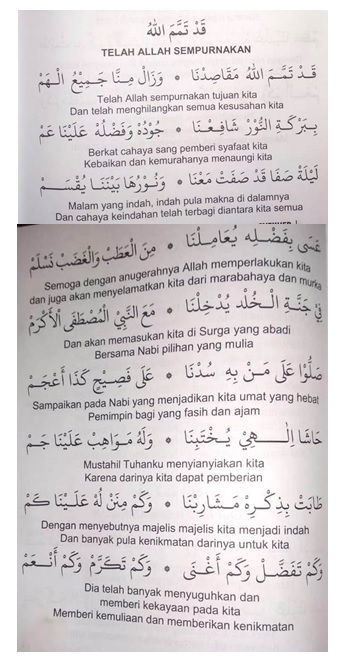 قَدْ تَمَّمَ اللهُ
TELAH ALLAH SEMPURNAKAN
قَدْ تَمَّمَ اللهُ مَقَاصِدْنَا • وَزَالَ مِنَّا جَمِيْعُ الْهَمْ
Telah Allah sempurnakan tujuan kita
Dan telah menghilangkan semua kesusahan kita
بِبَرَكَةِ النُّوْرْ شَافِعْنَا • جُوْدُهْ وَفَضْلُهْ عَلَيْنَا عَمْ
Berkat cahaya sang pemberi syafaat kita
Kebaikan dan kemurahanya menaungi kita
لَيْلَةْ صَفَا قَدْ صَفَتْ مَعْنَا • وَنُوْرُهَا بَيْنَنَا يُقْسَمْ
Malam yang indah, indah pula makna di dalamnya
Dan cahaya keindahan telah terbagi diantara kita semua
عَسَى بِفَضْلِهْ يُعَامِلْنَا • مِنَ الْعَطَبْ وَالْغَضَبْ نَسْلَمْ
Semoga dengan anugerahnya Allah memperlakukan kita
dan juga akan menyelamatkan kita dari marabahaya dan murka
فِيْ جَنَّةِ الْخُلْدْ يُدْخِلْنَا • مَعَ النَّبِيِّ الْمُصْطَفَى الْأَكْرَمْ
Dan akan memasukan kita di Surga yang abadi
Bersama Nabi pilihan yang mulia
صَلُّوْا عَلَى مَنْ بِهِ سُدْنَا • عَلَى فَصِيْحٍ كَذَا أَعْجَمْ
Sampaikan pada Nabi yang menjadikan kita umat yang hebat
Pemimpin bagi yang fasih dan ajam
حَاشَا إِلٰهِيْ يُخَيِّبْنَا • وَلَهُ مَوَاهِبْ عَلَيْنَا جَمْ
Mustahil Tuhanku menyianyiakan kita
Karena darinya kita dapat pemberian
طَابَتْ بِذِكْرِهْ مَشَارِبْنَا • وَكَمْ مِنَنْ لُهْ عَلَيْنَا كَمْ
Dengan menyebutnya majelis majelis kita menjadi indah
Dan banyak pula kenikmatan darinya untuk kita
وَكَمْ تَفَضَّلْ وَكَمْ أَغْنَى • وَكَمْ تَكَرَّمْ وَكَمْ أَنْعَمْ
Dia telah banyak menyuguhkan dan
memberi kekayaan pada kita
Memberi kemuliaan dan memberikan kenikmatan